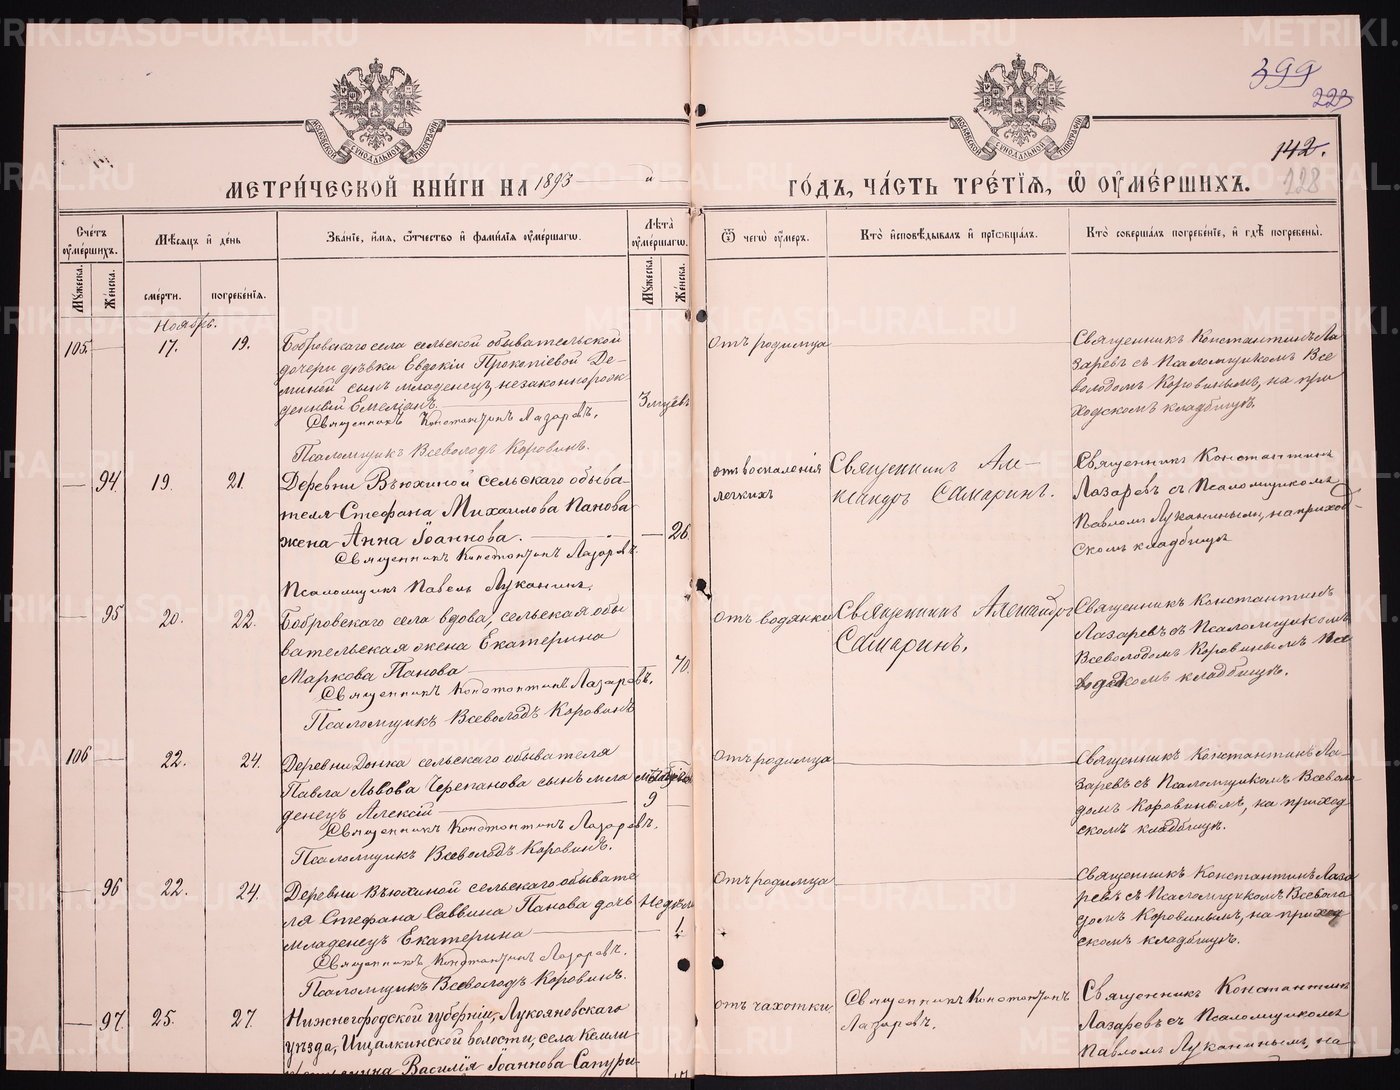 METRIKI.GASO-URAL.RU
399
223
142.
128
МОСКОВСКОЙ СѴНОДАЛЬНОЙ ТИПОГРАФІИ
МОСКОВСКОЙ СѴНОДАЛЬНОЙ ТИПОГРАФІИ
МЕТРИ́ЧЕСКОЙ КНИ́ГИ НА 1893 й ГО́ДЪ, ЧА́СТЬ ТРЕ́ТІЯ, Ѡ ОУМЕ́РШИХЪ.
Сче́тъ оуме́ршихъ.
Мѣ́сяцъ и де́нь
Зва́ніе, и́мя, ѻ́тчество и фами́лія оуме́ршагѡ.
Лѣта̀ оуме́ршагѡ.
Ѿ чегѡ̀ оу́меръ.
Кто̀ исповѣ́дывалъ и пріѡбща́лъ.
Кто̀ соверша́лъ погребе́ніе, и гдѣ̀ погребены̀.
Му́жеска.
Же́нска.
сме́рти.
погребе́нія.
Му́жеска.
Же́нска.
Ноябрь.
105. 17. 19.
Бобровскаго села сельской обывательской
дочери дѣвки Евдокіи Прокопіевой Де-
миной сынъ младенецъ, незаконнорож-
денный Емеліанъ
3 мцевъ
Священникъ Константинъ Лазаревъ.
Псаломщикъ Всеволодъ Коровинъ.
Отъ родимца
Священникъ Константинъ Ла
заревъ съ Псаломщикомъ Все
володомъ Коровинымъ, на при
ходскомъ кладбищѣ.
94. 19. 21.
Деревни Вьюхиной сельскаго обыва-
теля Стефана Михаилова Панова
жена Анна Іоаннова.
26.
Священникъ Константинъ Лазаревъ
Псаломщикъ Павелъ Луканинъ.
отъ воспаленія
легкихъ
Священникъ Але-
ксандръ Самаринъ.
Священникъ Константинъ
Лазаревъ съ Псаломщикомъ
Павломъ Луканинымъ, на приход-
скомъ кладбищѣ
95 20. 22.
Бобровскаго села вдова, сельская обы
вательская жена Екатерина
Маркова Панова
70.
Священникъ Константинъ Лазаревъ.
Псаломщикъ Всеволодъ Коровинъ
отъ водянки
Священникъ Александръ
Самаринъ.
Священникъ Константинъ
Лазаревъ съ Псаломщикомъ
Всеволодомъ Коровинымъ
кладбищѣ.
106 22. 24.
Деревни Донка сельскаго обывателя
Павла Львова Черепанова сынъ мла
денецъ Алексій
9
Священникъ Константинъ Лазаревъ.
Псаломщикъ Всеволодъ Коровинъ.
Отъ родимца
Священникъ Константинъ Ла-
заревъ съ Псаломщикомъ Всеволо-
домъ Коровинымъ, на приход
скомъ кладбищѣ.
96 22. 24.
Деревни Вьюхиной сельскаго обывате
ля Стефана Саввина Панова дочь
младенецъ Екатерина
Недѣли
1.
Священникъ Константинъ Лазаревъ.
Псаломщикъ Всеволодъ Коровинъ.
Отъ родимца
Священникъ Константинъ Лаза
ревъ съ Псаломщикомъ Всеволо
домъ Коровинымъ, на приход
скомъ кладбищѣ.
97. 25. 27.
Нижнегородской губерніи, Лукояновскаго
уѣзда, Ищалкинской волости, села Кемли
Василія Іоаннова
отъ чахотки
Священникъ Константинъ
Лазаревъ.
Священникъ Константинъ
Лазаревъ съ Псаломщикомъ
Павломъ Луканинымъ, на-